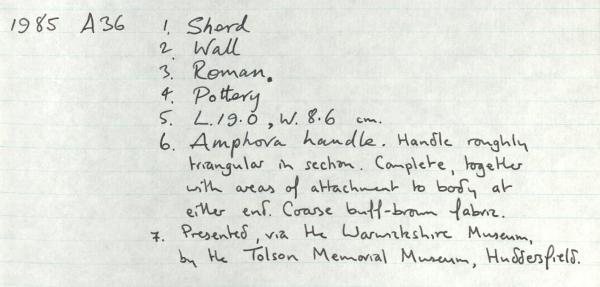 1985 A36 1. Sherd
2. Wall
3. Roman.
4. Pottery
5. L. 19.0, W. 8.6 cm.
6. Amphora handle. Handle roughly
triangular in section. Complete, together
with areas of attachment to body at
either end. Coarse buff-brown fabric.
7. Presented, via the Warwickshire Museum,
by the Tolson Memorial Museum, Huddersfield.